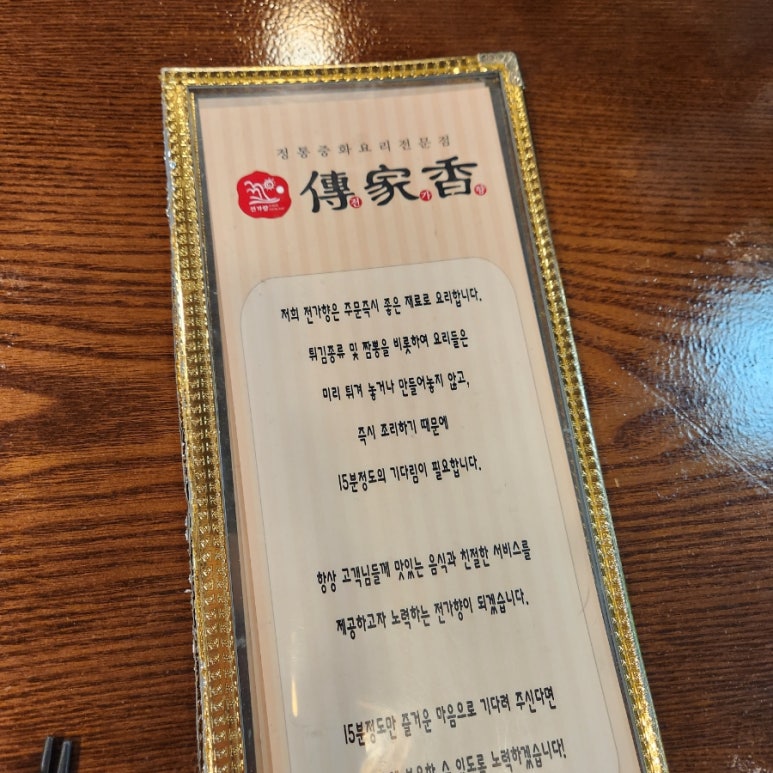 정통중화요리전문점
전가향
傳家香
전 가 향
저희 전가향은 주문즉시 좋은 재료로 요리합니다.
튀김종류 및 짬뽕을 비롯하여 요리들은
미리 튀겨 놓거나 만들어놓지 않고,
즉시 조리하기 때문에
15분정도의 기다림이 필요합니다.
항상 고객님들께 맛있는 음식과 친절한 서비스를
제공하고자 노력하는 전가향이 되겠습니다.
15분정도만 즐거운 마음으로 기다려 주신다면
수 있도록 노력하겠습니다!